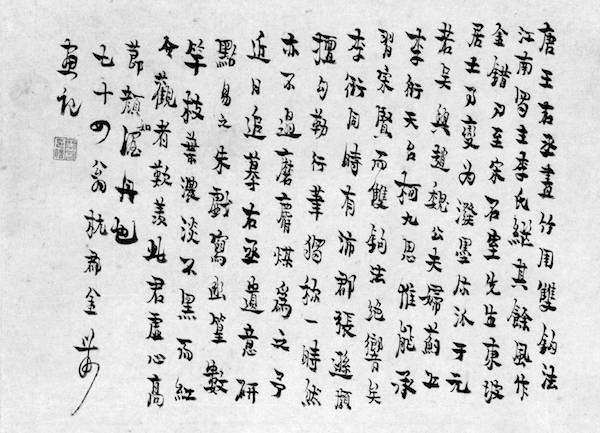 唐王右丞畫竹用雙鈎法
江南主李氏繼其餘風作
金錯刀至宋石室先生東坡
居士乃變為潑墨派于元
若吳興趙魏公夫婦薊丘
李衎天台柯九思惟能承
習宋賢而雙鈎法絕響矣
李衎同時有沛郡張遜頗
擅勾勒行筆獨稱一時然
亦不過磨麝煤為之予
近日追摹右丞遺意研
點易之朱戲寫幽篁數
竿枝葉濃淡不黑而紅
令觀者歎羨此君虛心高
節顏如渥丹也
七十四翁杭郡金農
畫記